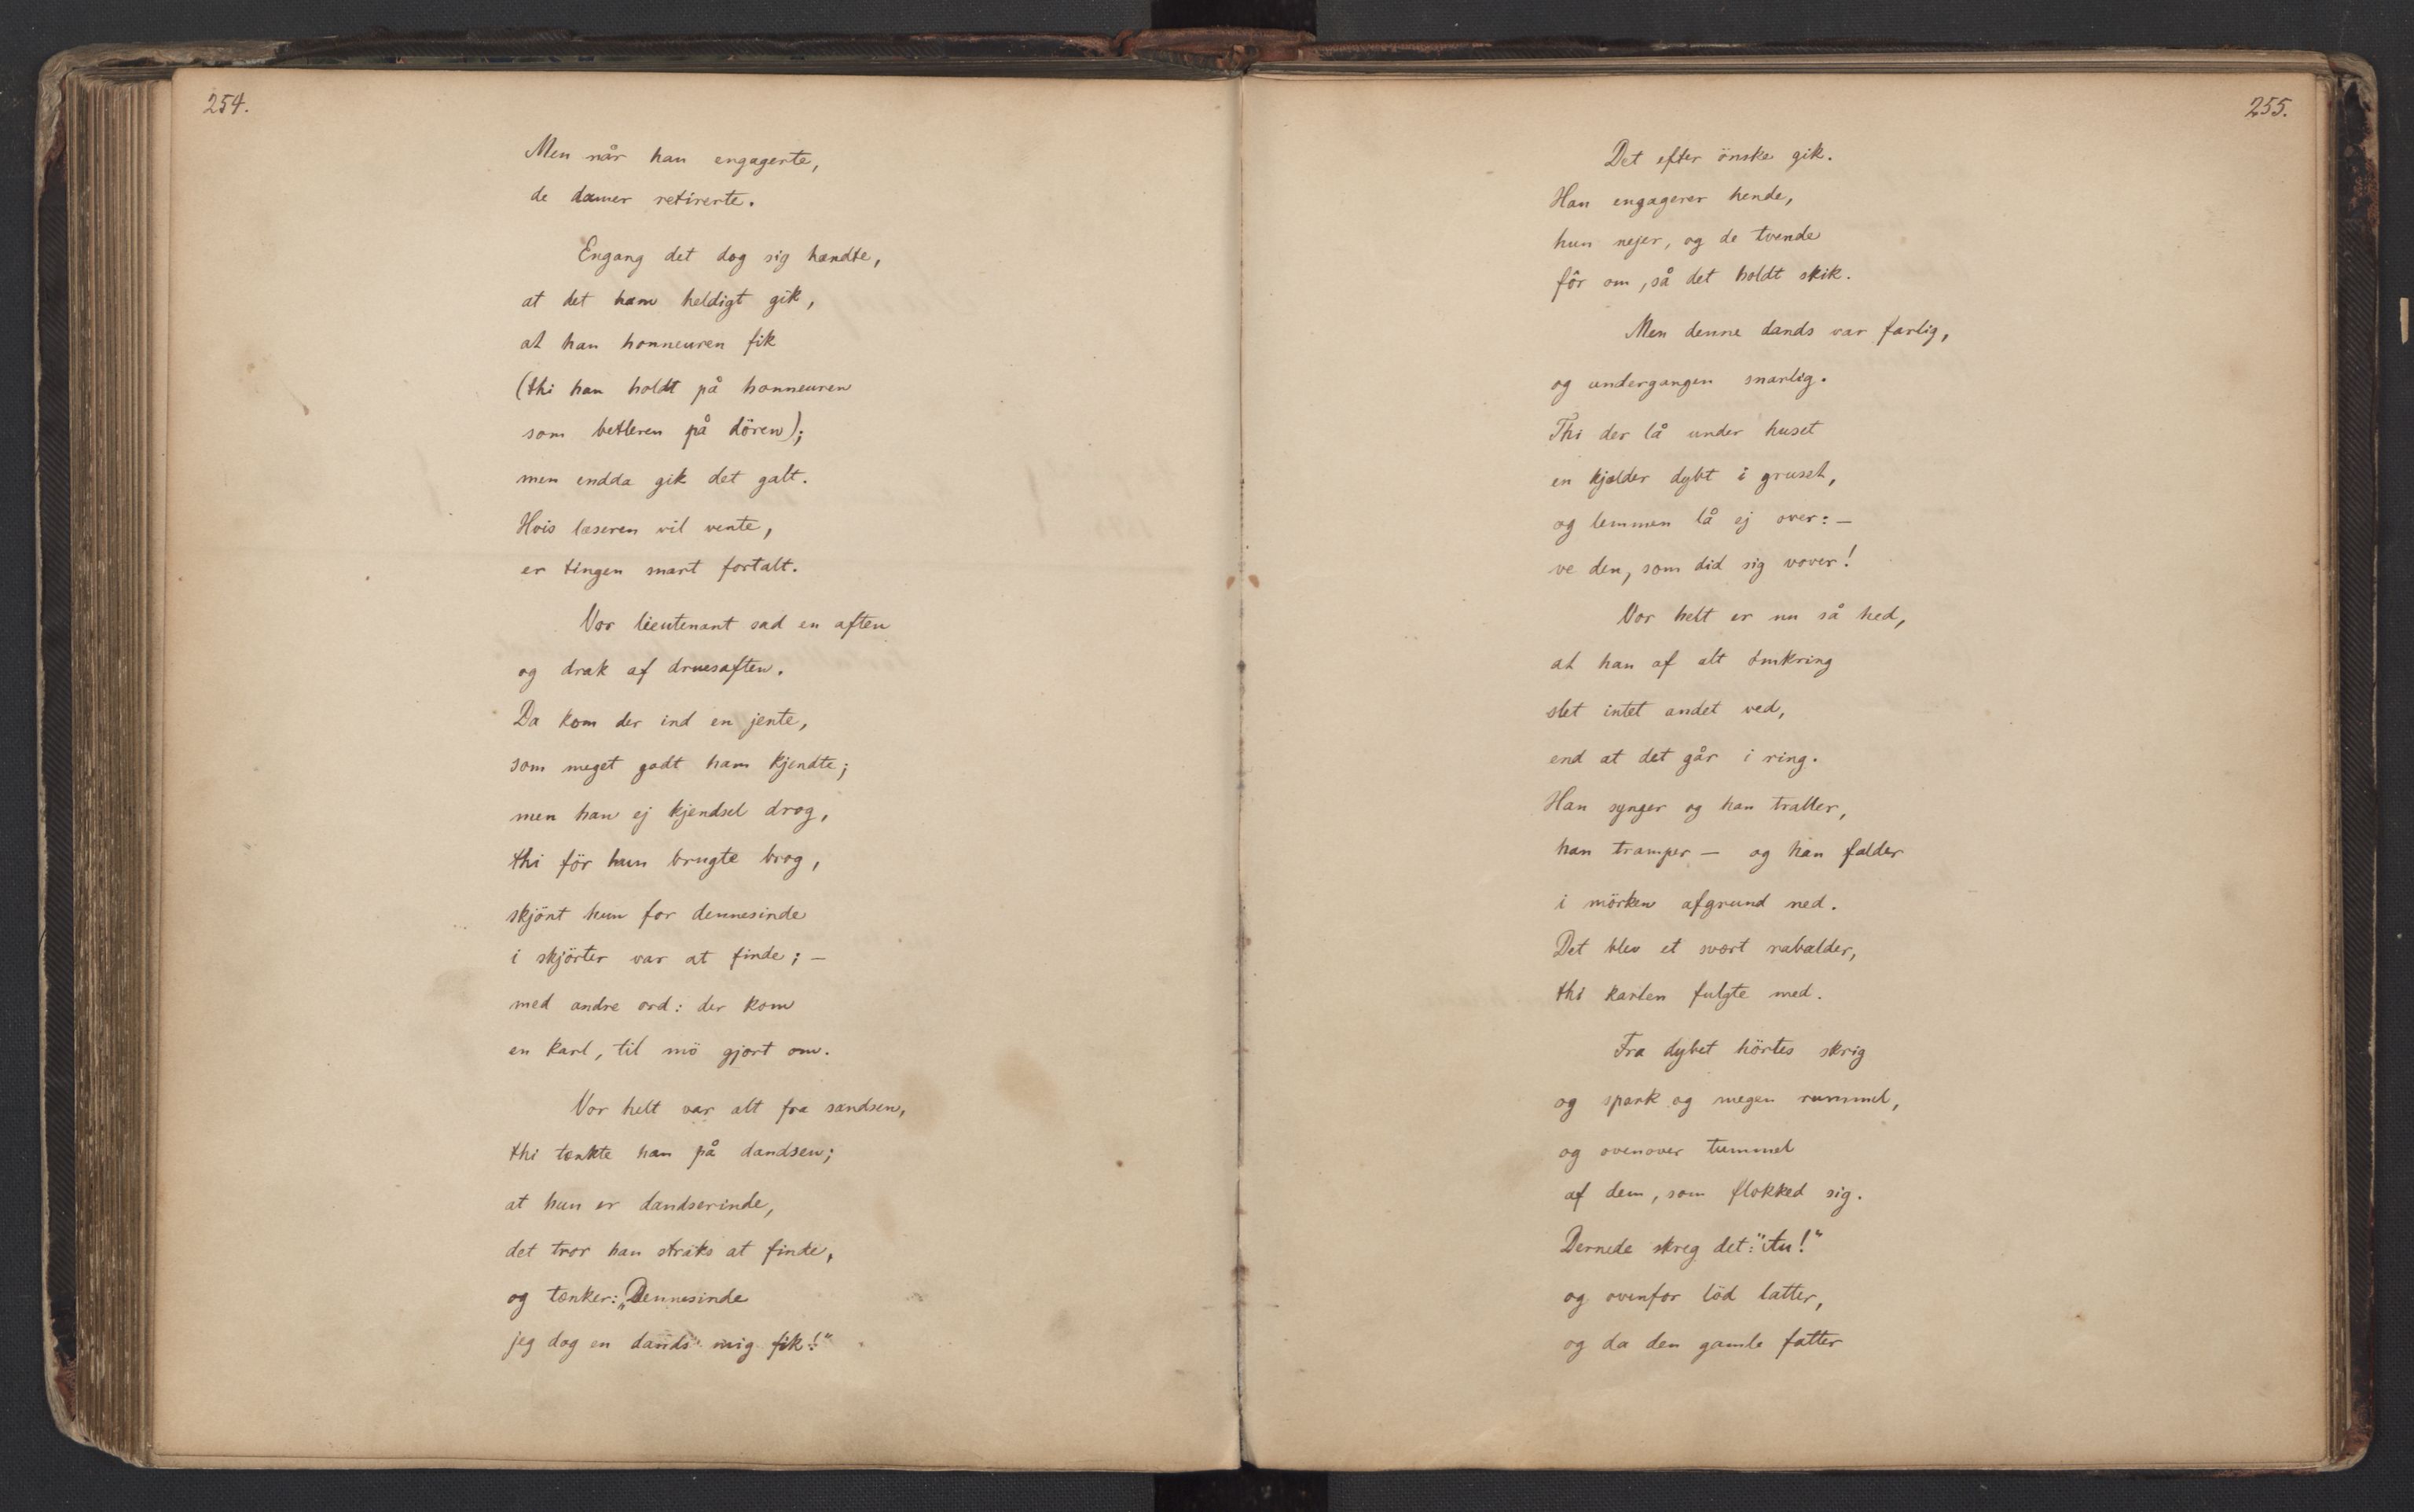 254.
Men når han engagerte,
de damer retirerte.
Engang det dog sig hændte,
at det ham heldigt gik,
at han honneuren fik
(thi han holdt på honneuren
som betleren på dören);
men endda gik det galt.
Hvis læseren vil vente,
er tingen snart fortalt.
Vor lieutenant sad en aften
og drak af druesaften.
Da kom der ind en jente,
som meget godt ham kjendte;
men han ej kjendsel drog,
thi för hun brugte brog,
skjönt hun for dennesinde
i skjörter var at finde; —
med andre ord: der kom
en karl, til mö gjort om.
Vor helt var alt fra sandsen,
thi tænkte han på dandsen;
at hun er dandserinde,
det tror han straks at finde,
og tænker: „Dennesinde
jeg dog en dands mig fik!"
255.
Det efter önske gik.
Han engagerer hende,
hun nejer, og de tvende
fôr om, så det holdt skik.
Men denne dands var farlig,
og undergangen snarlig.
Thi der lå under huset
en kjælder dybt i gruset,
og lemmen lå ej over: —
ve den, som did sig vover!
Vor helt er nu så hed,
at han af alt omkring
slet intet andet ved,
end at det går i ring.
Han synger og han traller,
han tramper — og han falder
i mörken afgrund ned.
Det blev et svært rabalder,
thi karlen fulgte med.
Fra dybet hörtes skrig
og spark og megen rummel,
og ovenover tummel
af dem, som flokked sig.
Dernede skreg det: "Au!"
og ovenfor löd latter,
og da den gamle fatter